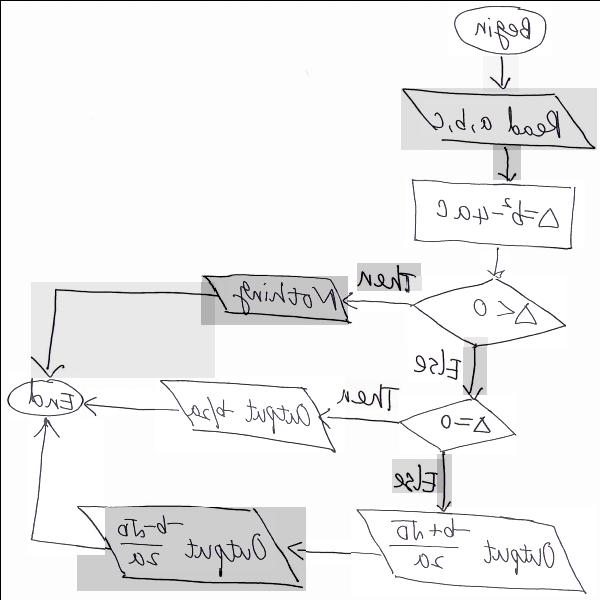 Begin
Read a,b,c
Δ=b²-4ac
Δ<0
Then
Nothing
Else
Δ=0
Then
Output -b/2a
End
Else
Output -b+√D
2a
Output -b-√D
2a